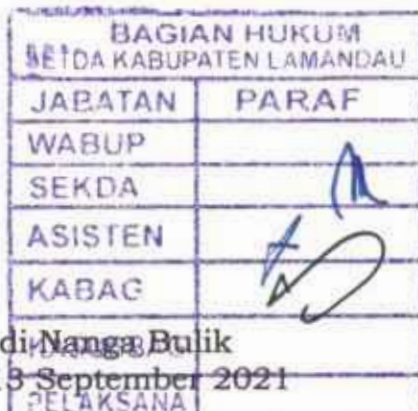 BAGIAN HUKUM
SETDA KABUPATEN LAMANDAU
JABATAN PARAF
WABUP
SEKDA
ASISTEN
KABAG
di Nanga Bulik
3 September 2021
PELAKSANA